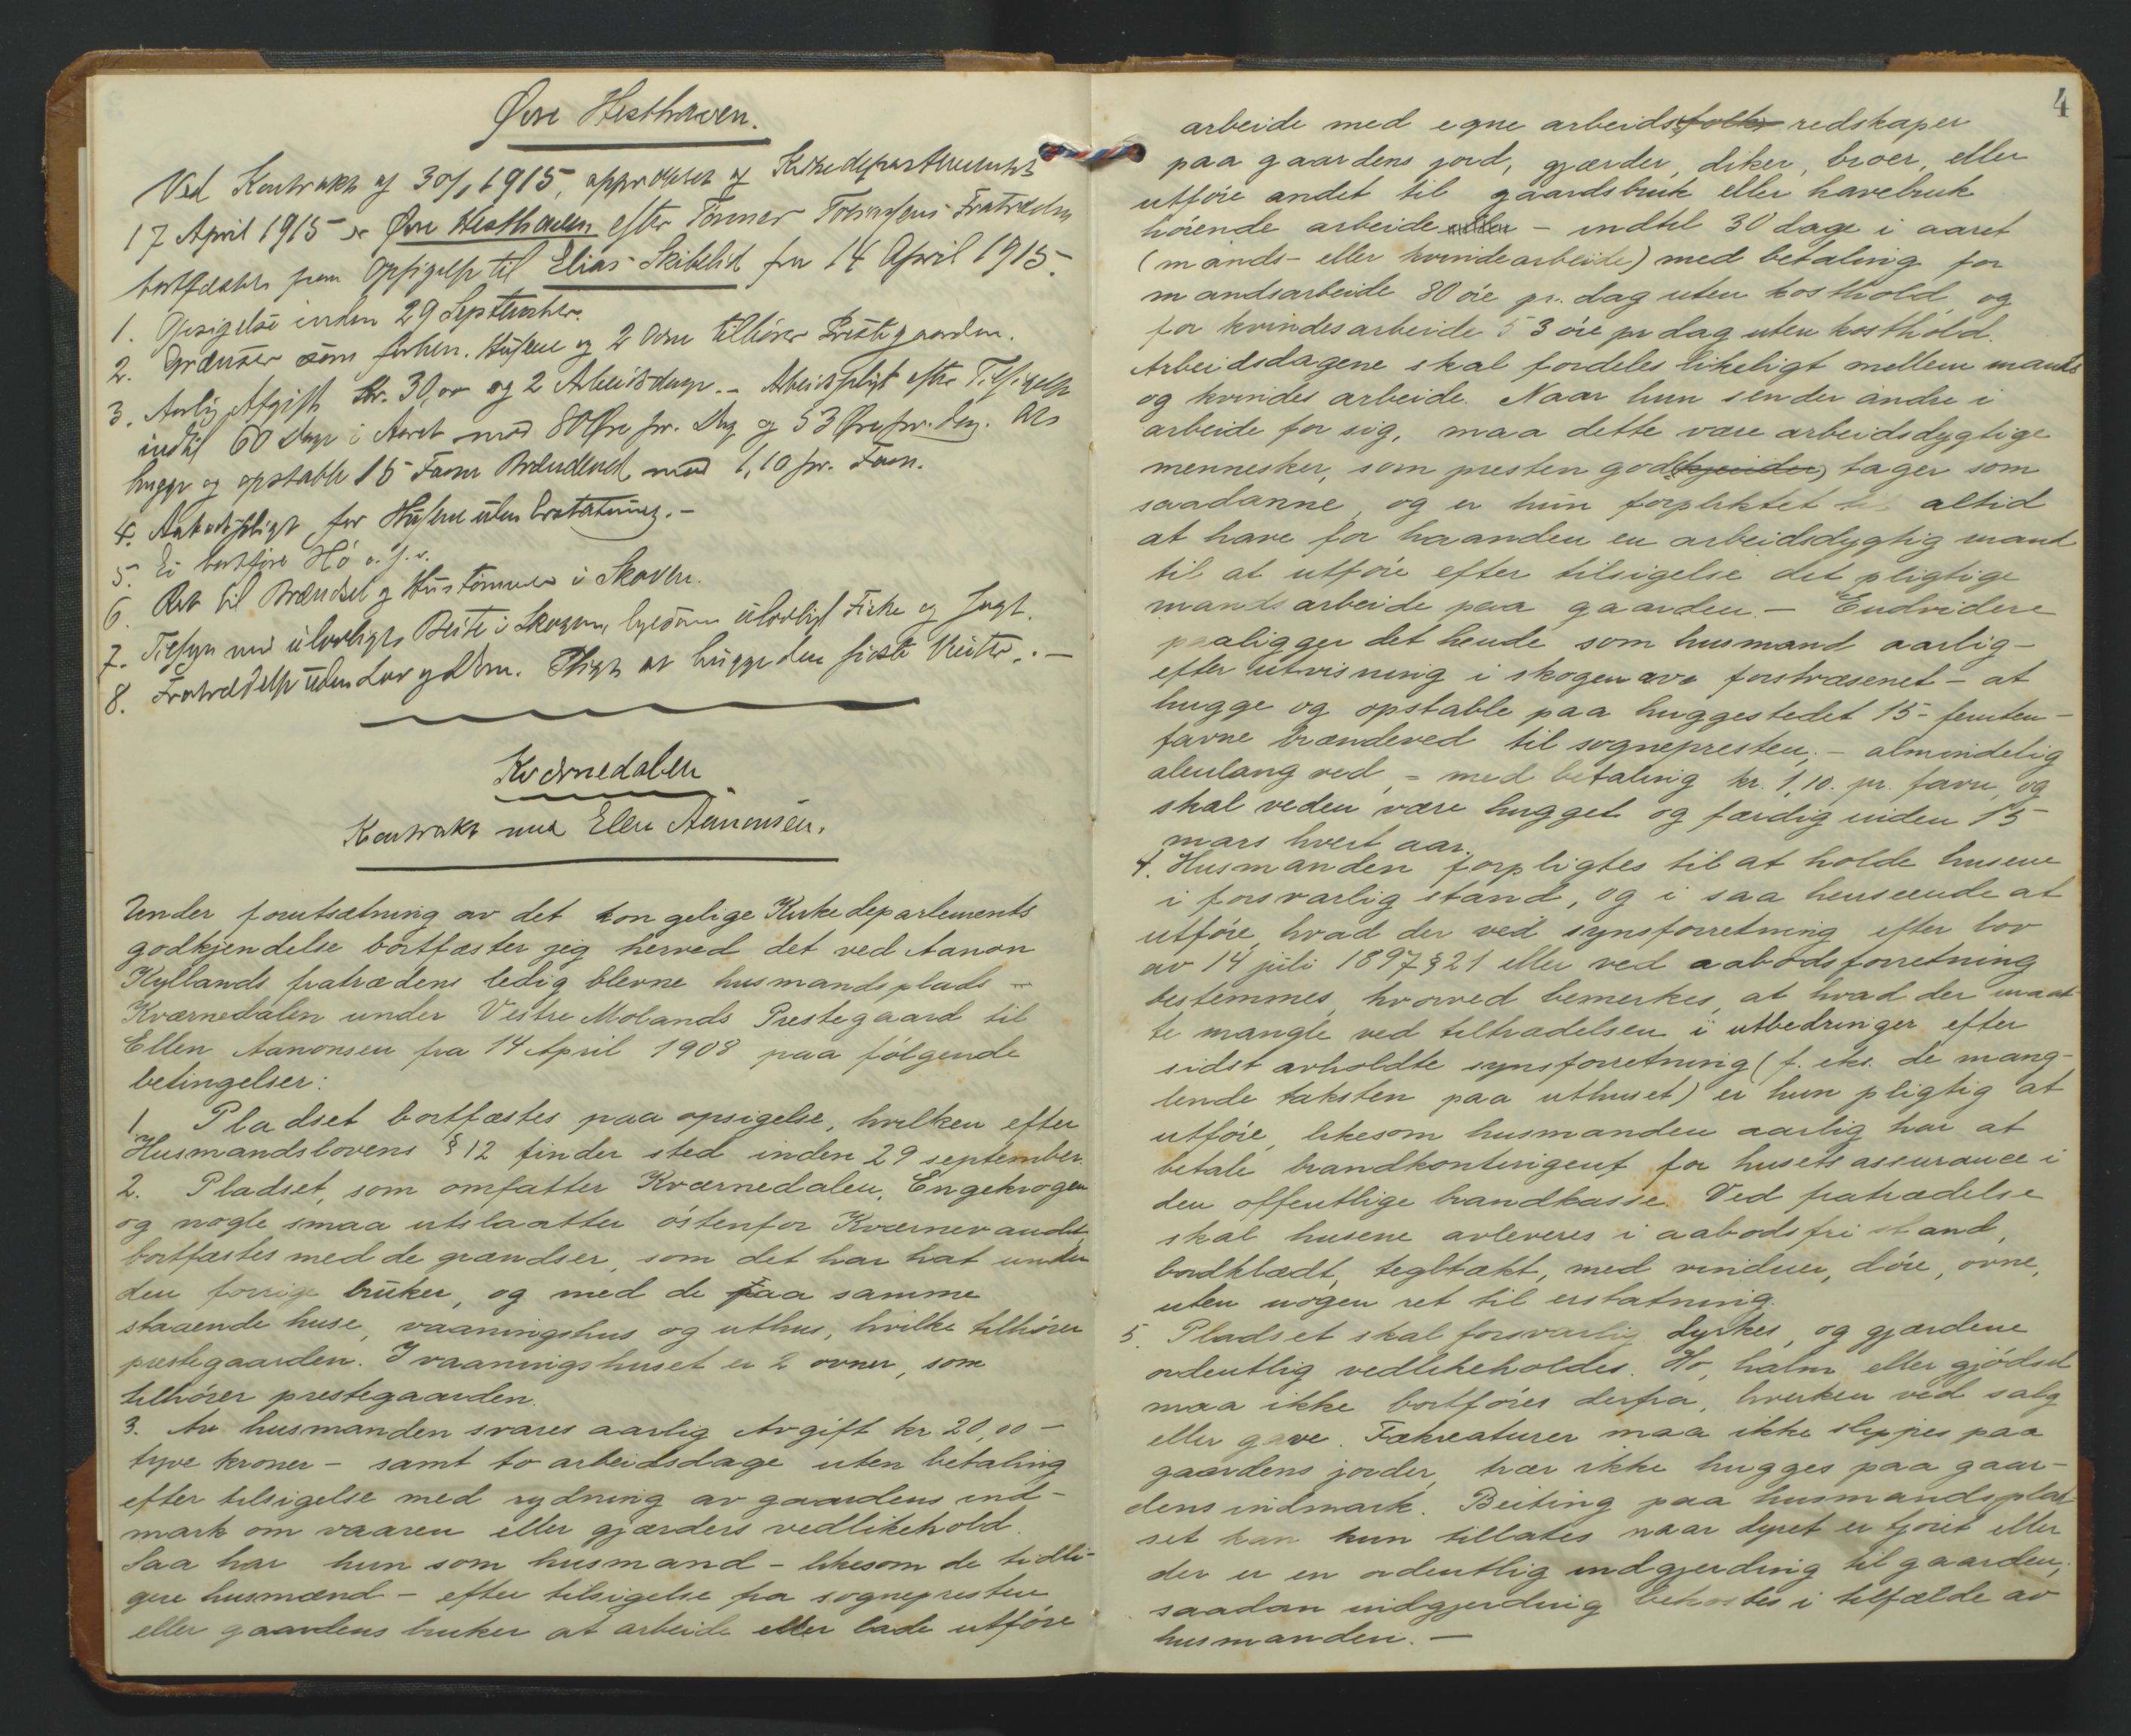 Øvre Hesthaven.
Ved Kontrakt af 30/1 1915, approberet af Kirkedepartementet
17 April 1915 er Øvre Hesthaven efter Tønnes Fratræden
bortfæstet paa Opsigelse til Elias Skibelid fra 14 April 1915.
1. Opsigelse inden 29 September.
2. Grænser som forhen. Husene og 2 Ovne tilhører Prestegaarden.
3. Aarlig Afgift Kr. 30,00 og 2 Arbeidsdage. - Arbeidspligt efter Tilsigelse
indtil 60 Dage i Aaret mod 80 Øre pr. Dag og 53 Øre pr. Dag. At
hugge og opstable 15 Favne Brændeved mod 1,10 pr. Favn.
4. Aabodspligt for Husene uden Erstatning. -
5. Ei bortføre Hø o.s.v.
6. Ret til Brændsel og Hustømmer i Skoven.
7. Tilsyn med ulovligt Beite i Skogen, ligesom ulovligt Fiske og Jagt.
8. Fratrædelse uden Lov og Dom. Pligt at hugge den sidste Vinter. -
Kværnedalen
Kontrakt med Ellen Aanonsen.
Under forutsætning av det kongelige Kirkedepartements
godkjendelse bortfæster jeg herved det ved Aanon
Kyllands fratrædens ledig blevne husmandsplads -
Kværnedalen under Vestre Molands Prestegaard til
Ellen Aanonsen fra 14 April 1908 paa følgende
betingelser:
1. Pladset bortfæstes paa opsigelse, hvilken efter
Husmandslovens § 12 finder sted inden 29 september.
2. Pladset, som omfatter Kværnedalen, Engekrogen
og nogle smaa utslaatter østenfor Kværnevandet
bortfæstes med de grændser, som det har hat under
den forrige bruker, og med de paa samme
staaende huse, vaaningshus og uthus, hvilke tilhører
prestegaarden. I vaaningshuset er 2 ovner, som
tilhører prestegaarden.
3. Av husmanden svares aarlig Avgift kr 20,00 -
tyve kroner - samt to arbeidsdage uten betaling
efter tilsigelse med rydning av gaardens ind-
mark om vaaren eller gjærders vedlikehold.
Saa har hun som husmand - likesom de tidli-
gere husmænd - efter tilsigelse fra sognepresten
eller gaardens bruker at arbeide eller lade utføre
4
arbeide med egne arbeidsfolk redskaper
paa gaardens jord, gjærder, diker, broer, eller
utføre andet til gaardsbruk eller havebruk
hørende arbeide eller - indtil 30 dage i aaret
(mands- eller kvindearbeide) med betaling for
mandsarbeide 80 øre pr. dag uten kosthold og
for kvindesarbeide 53 øre pr dag uten kosthold.
Arbeidsdagene skal fordeles likeligt mellem mands
og kvindes arbeide. Naar hun sender andre i
arbeide for sig, maa dette være arbeidsdygtige
mennesker, som presten godkjender, tager som
saadanne, og er hun forpliktet til altid
at have for haanden en arbeidsdygtig mand
til at utføre efter tilsigelse det pligtige
mandsarbeide paa gaarden. - Endvidere
paaligger det hende som husmand aarlig -
efter utvisning i skogen av forstvæsenet - at
hugge og opstable paa huggestedet 15 - femten -
favne brændeved til sognepresten, - almindelig
alenlang ved, - med betaling kr. 1,10. pr. favn, og
skal veden være hugget og færdig inden 15
mars hvert aar.
4. Husmanden forpligtes til at holde husene
i forsvarlig stand, og i saa henseende at
utføre, hvad der ved synsforretning efter lov
av 14 juli 1897 § 21 eller ved aabodsforretning
bestemmes, hvorved bemerkes, at hvad der maat-
te mangle ved tiltrædelsen i utbedringer efter
sidst avholdte synsforretning (f. eks. de mang-
lende taksten paa uthuset) er hun pligtig at
utføre, likesom husmanden aarlig har at
betale brandkontingent for husets assurance i
den offentlige brandkasse. Ved fratrædelse
skal husene avleveres i aabodsfri stand,
bordklædt, tegltækt, med vinduer, døre, ovne,
uten nogen ret til erstatning.
5. Pladset skal forsvarlig dyrkes, og gjærdene
ordentlig vedlikeholdes. Hø, halm eller gjødsel
maa ikke bortføres derfra, hverken ved salg
eller gave. Fækreaturer maa ikke slippes paa
gaardens jorder, trær ikke hugges paa gaar-
dens indmark. Beiting paa husmandsplad-
set kan kun tillates naar dyret er tjoret eller
der er en ordentlig indgjerding til gaarden;
saadan indgjerding bekostes i tilfælde av
husmanden. -